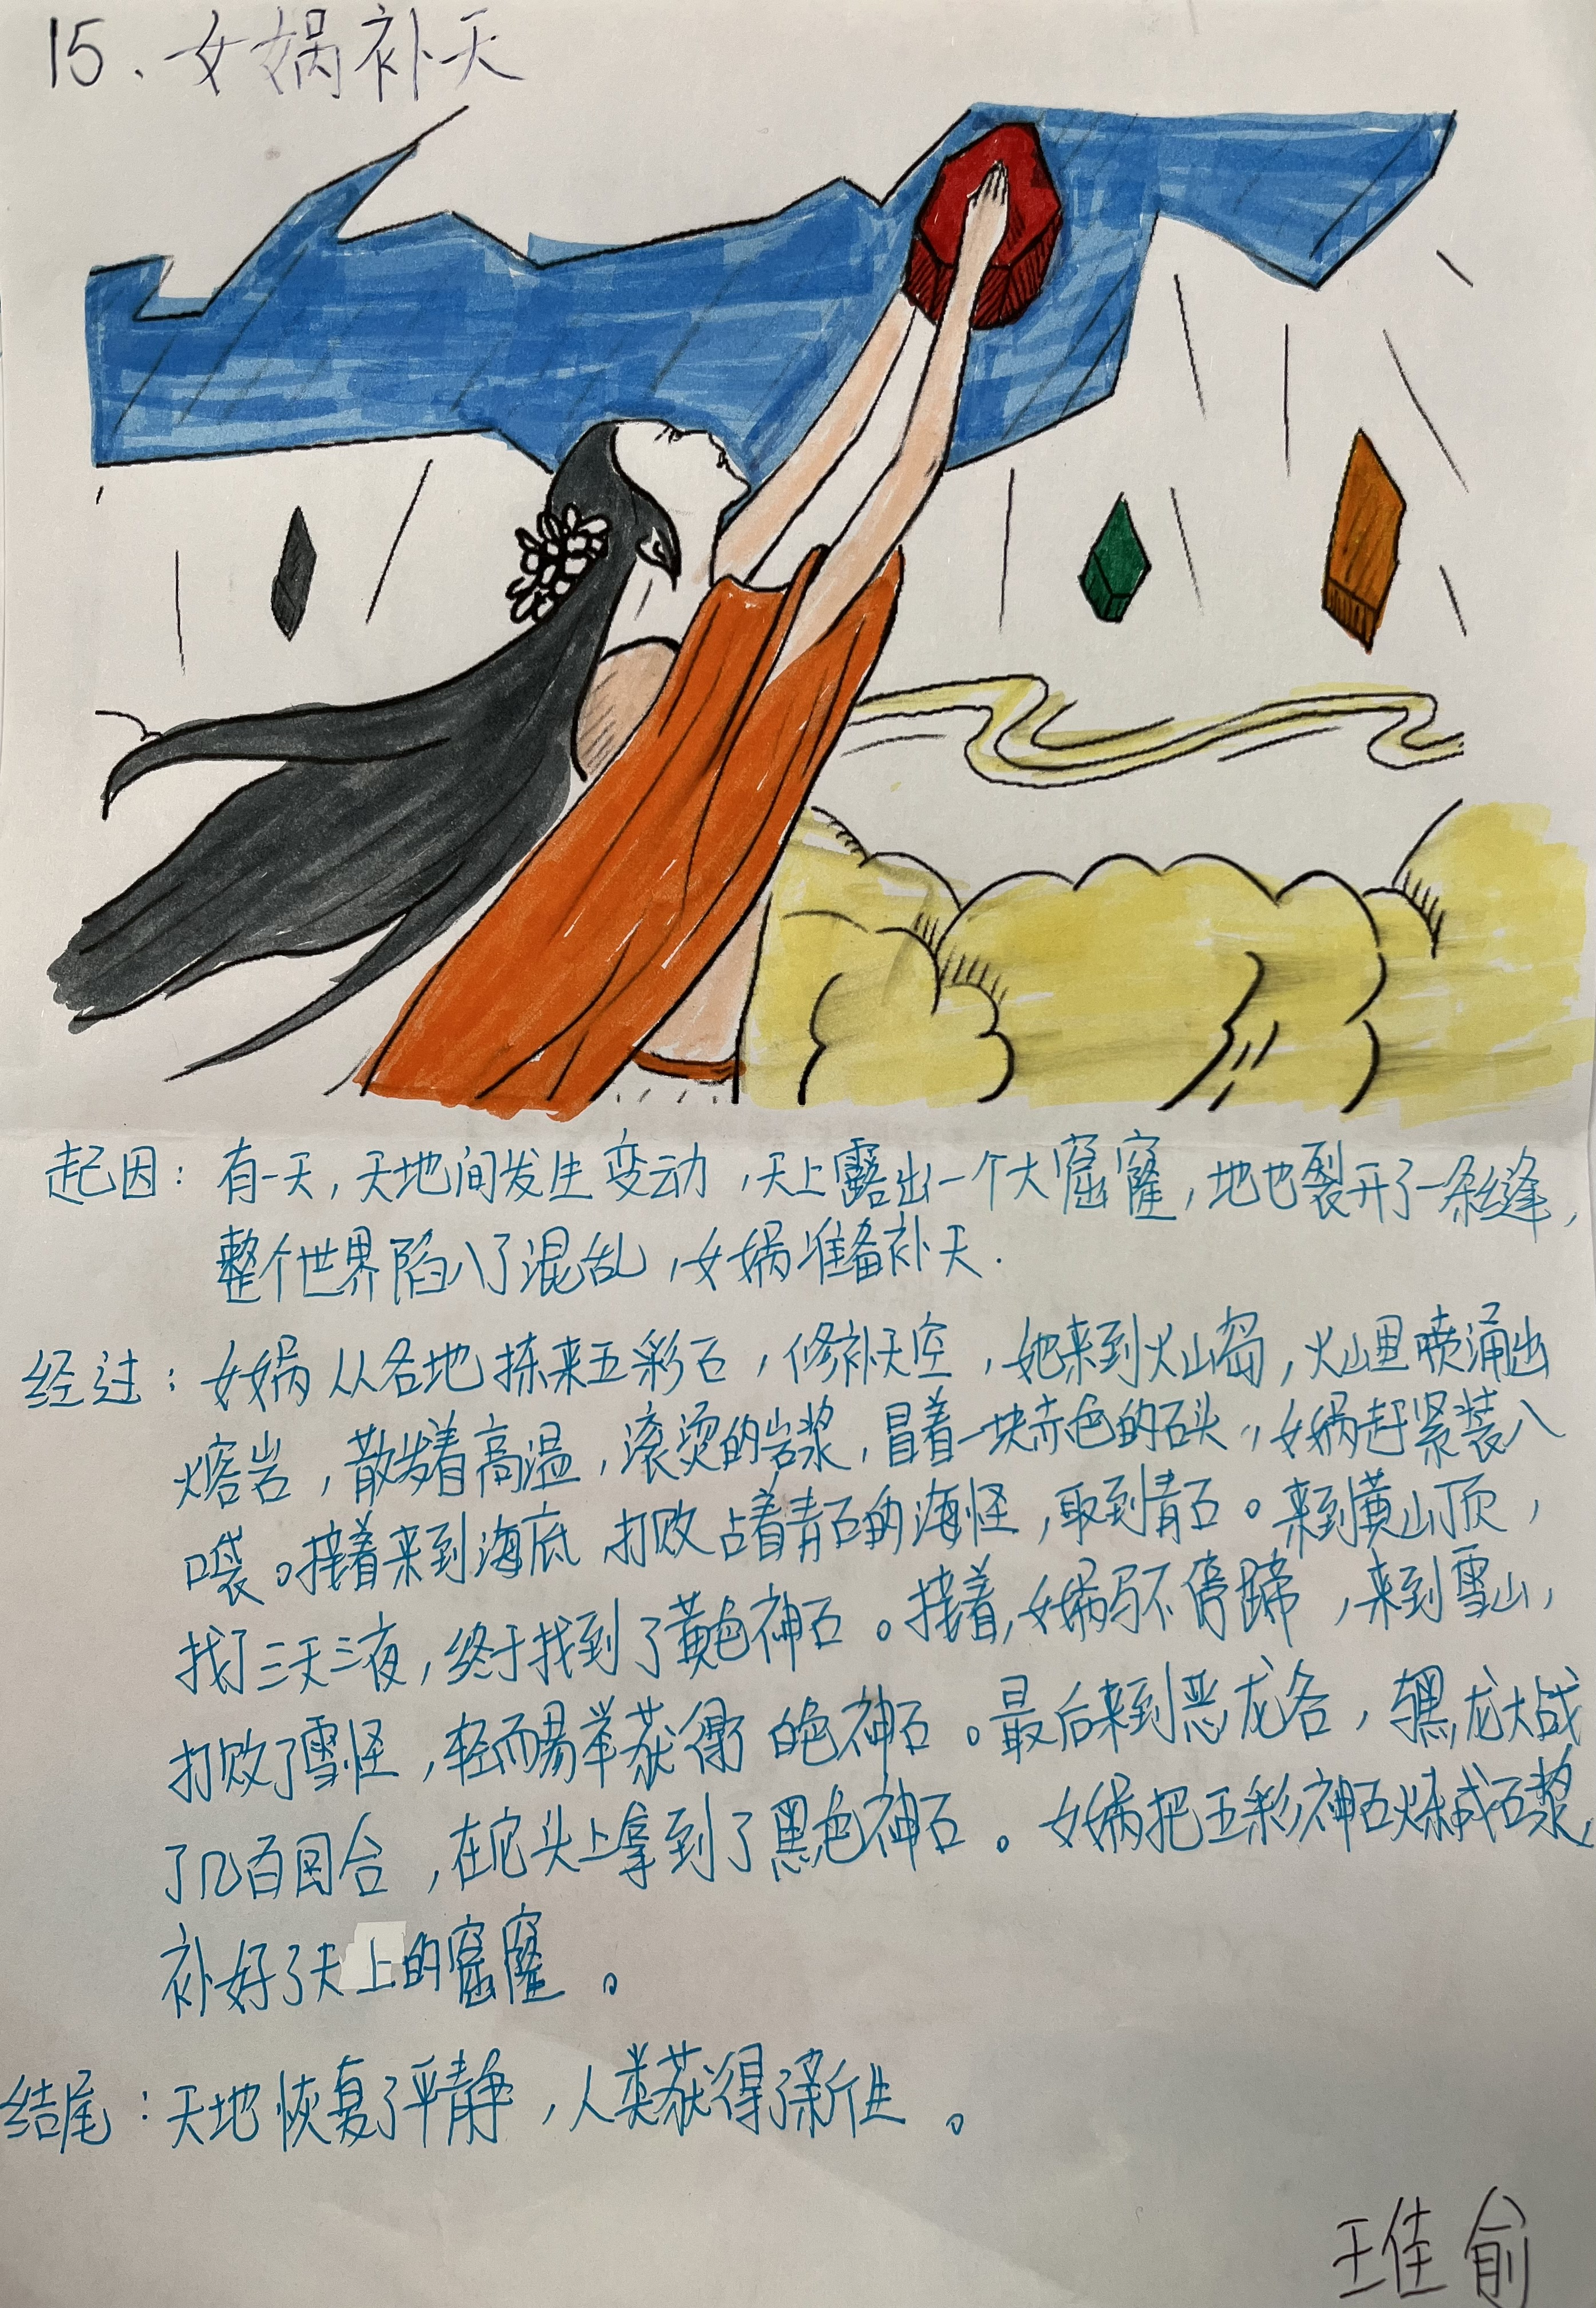 15、女娲补天
起因：有一天，天地间发生变动，天上露出一个大窟窿，地也裂开了一条缝，
整个世界陷入了混乱，女娲准备补天.
经过：女娲从各地拣来五彩石，修补天空，她来到火山岛，火山里喷涌出
熔岩，散发着高温，滚烫的岩浆，冒着一块赤色的石头，女娲赶紧装入
口袋。接着来到海底 打败占着青石的海怪，取到青石。来到黄山顶，
找了三天三夜，终于找到了黄色神石。接着，女娲马不停蹄，来到雪山，
打败了雪怪，轻而易举获得 白色神石。最后来到恶龙谷，与黑龙大战
了几百回合，在它头上拿到了黑色神石。女娲把五彩神石炼成石浆，
补好了天上的窟窿。
结尾：天地恢复了平静，人类获得了新生。
王佳俞